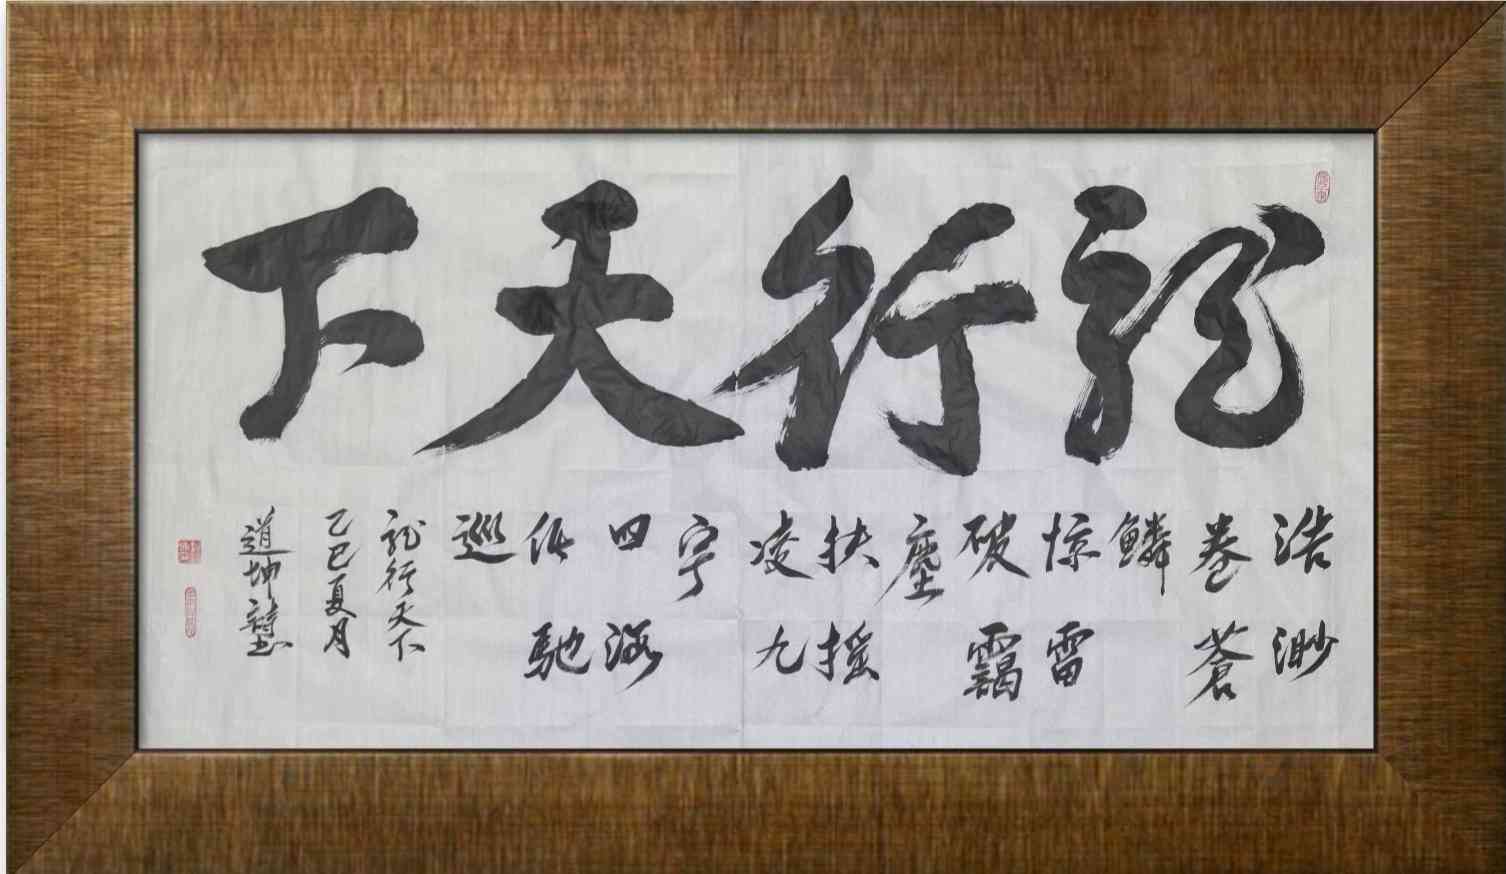 龍行天下
浩渺
卷蒼
鱗
惊雷
破靄
塵
扶摇
凌九
宇
四海
任馳
巡
龍行天下
乙巳夏月
道坤詩书